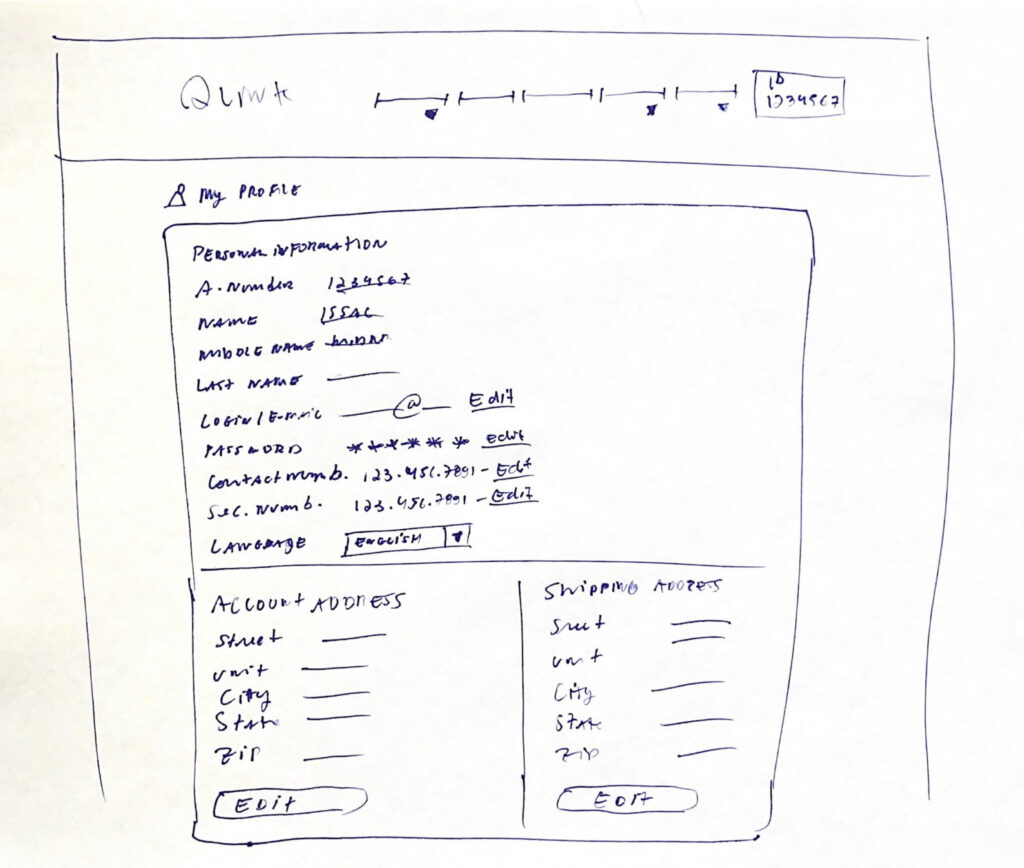 ID
1234567
My PROFILE
PERSONAL INFORMATION
A. Number 1234567
NAME ISSAC
MIDDLE NAME
LAST NAME
LOGIN / E-MAIL @ Edit
PASSWORD ****** edit
Contact Numb. 123.456.7891 - Edit
Sec. Numb. 123.456.7891 - Edit
LANGUAGE ENGLISH
ACCOUNT ADDRESS
Street
unit
City
State
Zip
EDIT
SHIPPING ADDRESS
Street
unit
City
State
Zip
EDIT